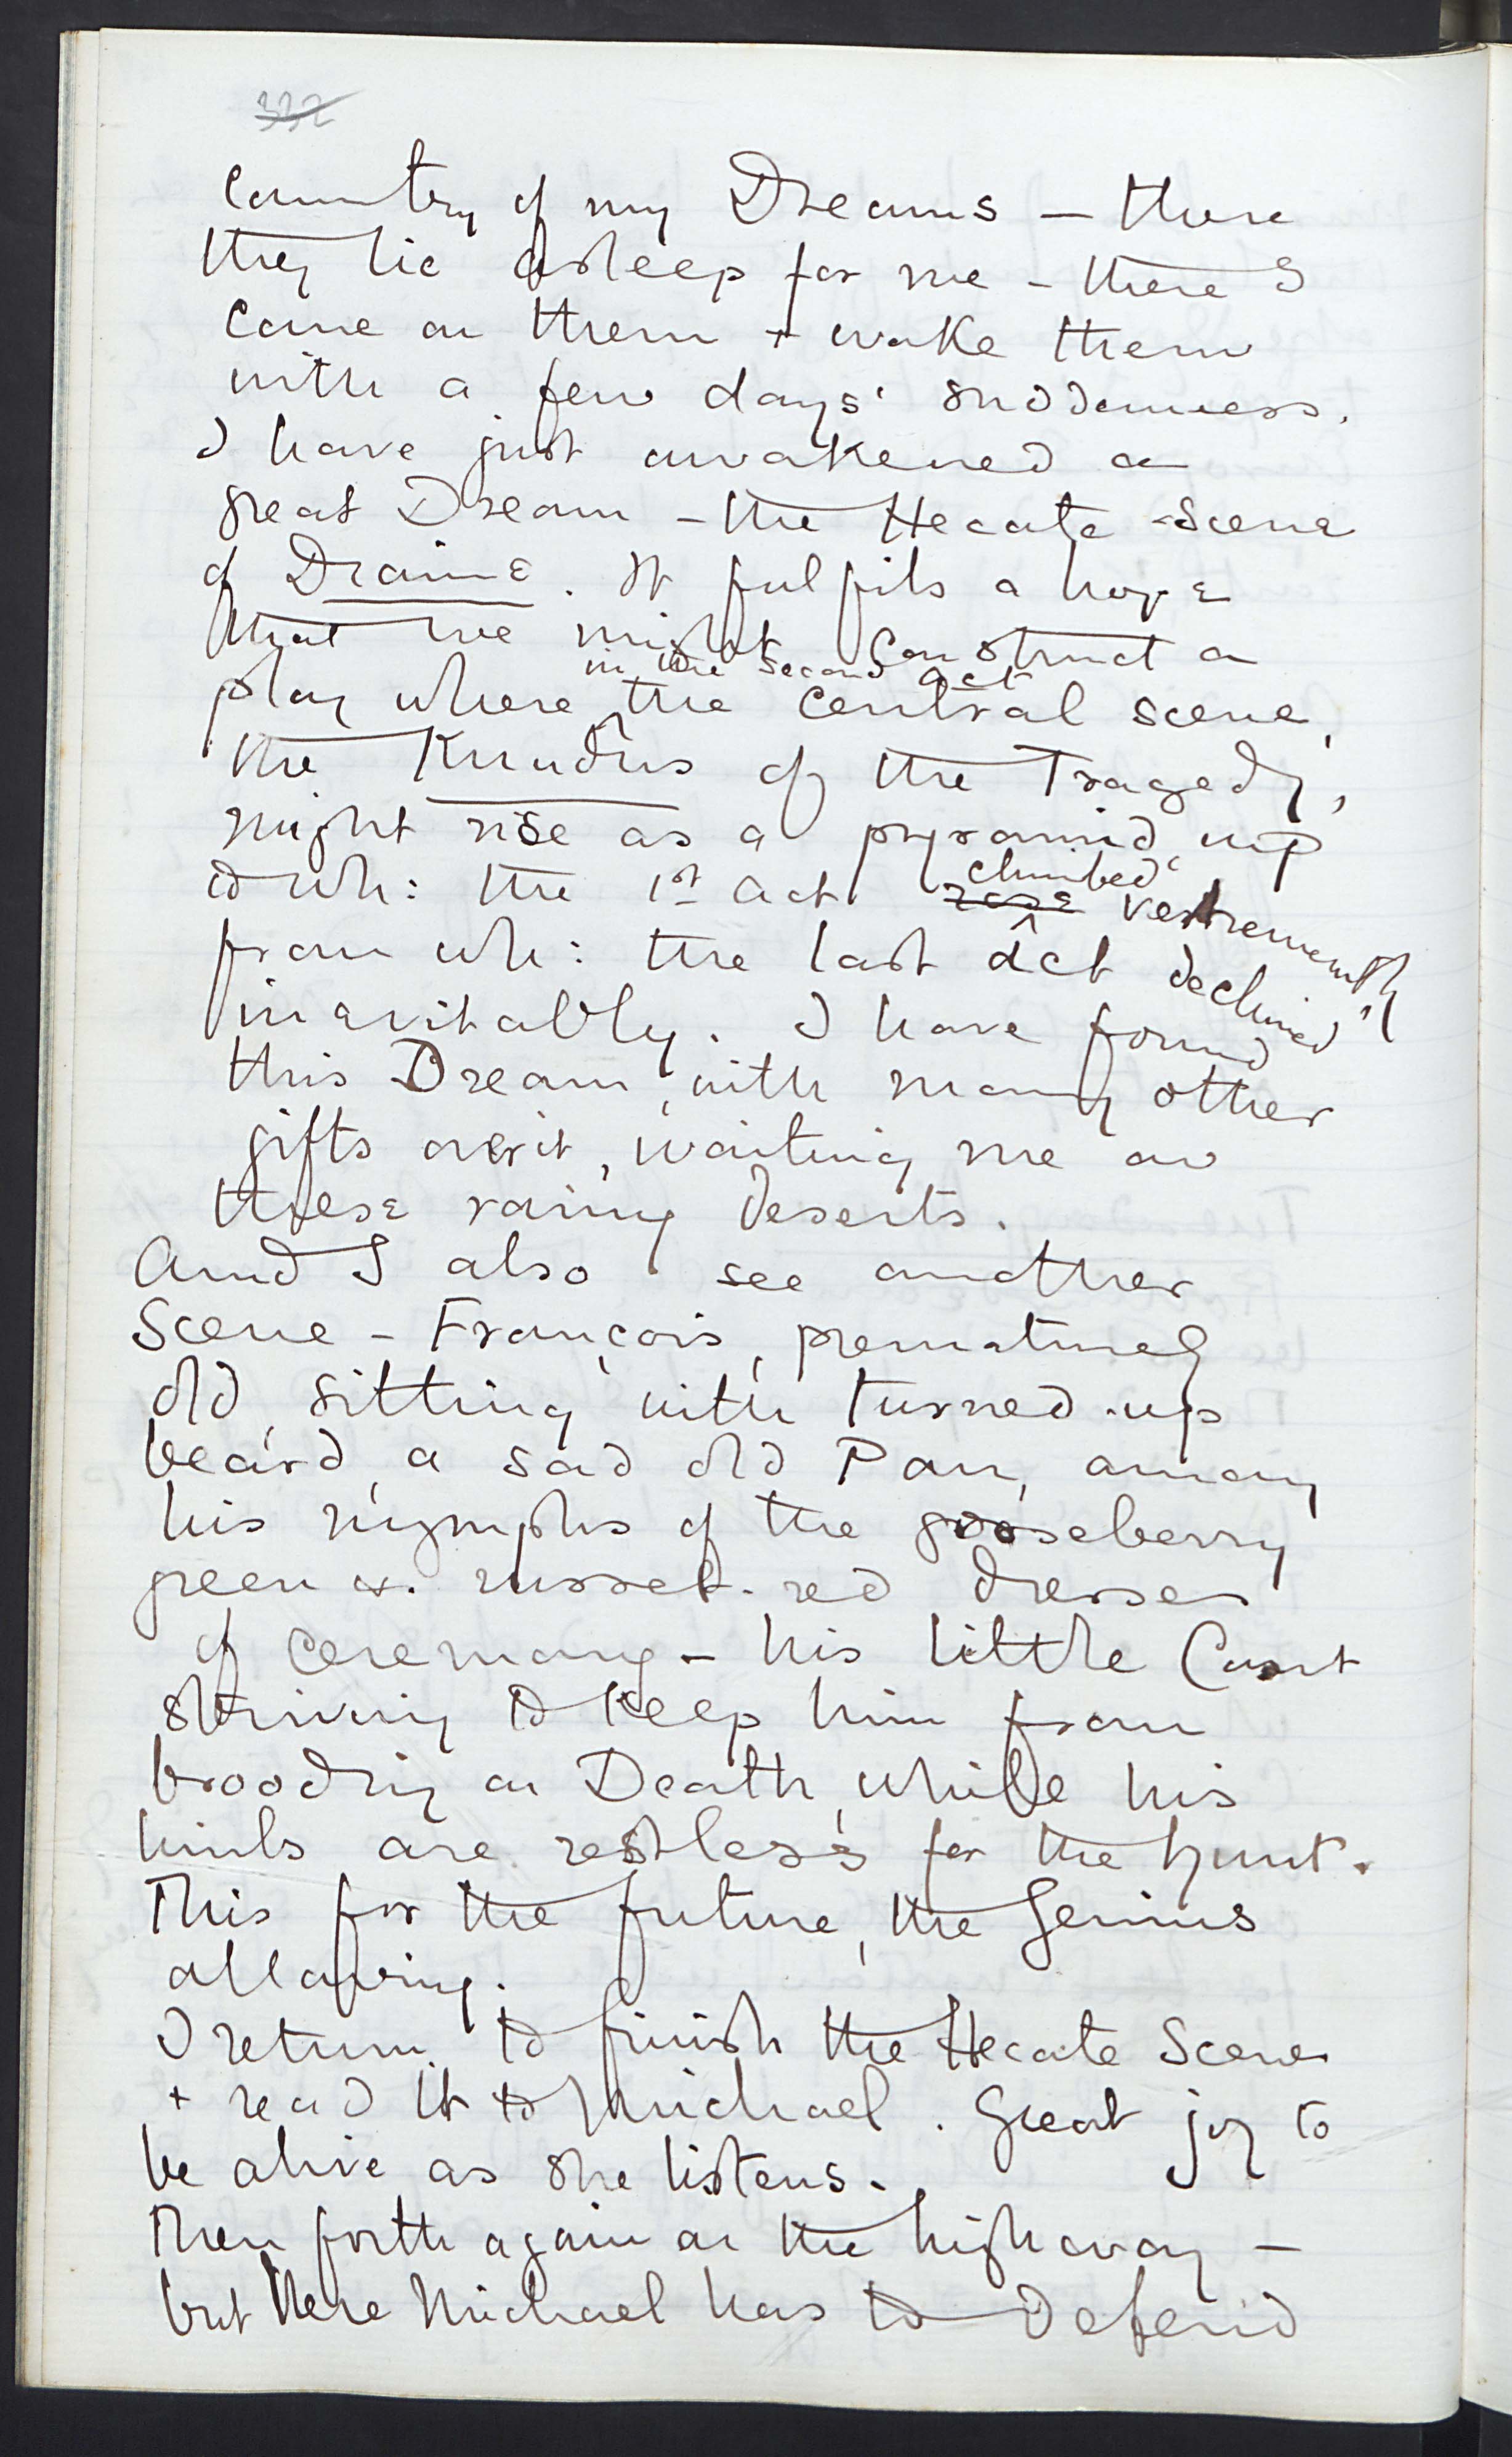 332
country of my Dreams — there
they lie asleep for me – there I
come on them + wake them
with a few days' suddenness.
I have just awakened a
great Dream – the Hecate-Scene
of Diane. It fulfils a hope
that we might construct a
in the second act
play where the central scene,
the of the Tragedy,
might rise as a pyramid up
climbed
to wh: the 1st act rose vehemently,
from wh: the last act declined
inevitably. I have found
this Dream, with many other
gifts over it, waiting me on
these rainy deserts.
And I also see another
Scene – François, prematurely
old, sitting with turned-up
beard, a sad old Pan, among
his nymphs of the gooseberry
green &. russet-red dresses
of ceremony – his little Court
striving to keep him from
brooding on Death, while his
limbs are restless for the hunt.
This for the future, the Genius
allowing.
I return to finish the Hecate Scene
+ read it to Michael. Great joy to
be alive as she listens.
Then forth again on the highway –
but here Michael has to defend